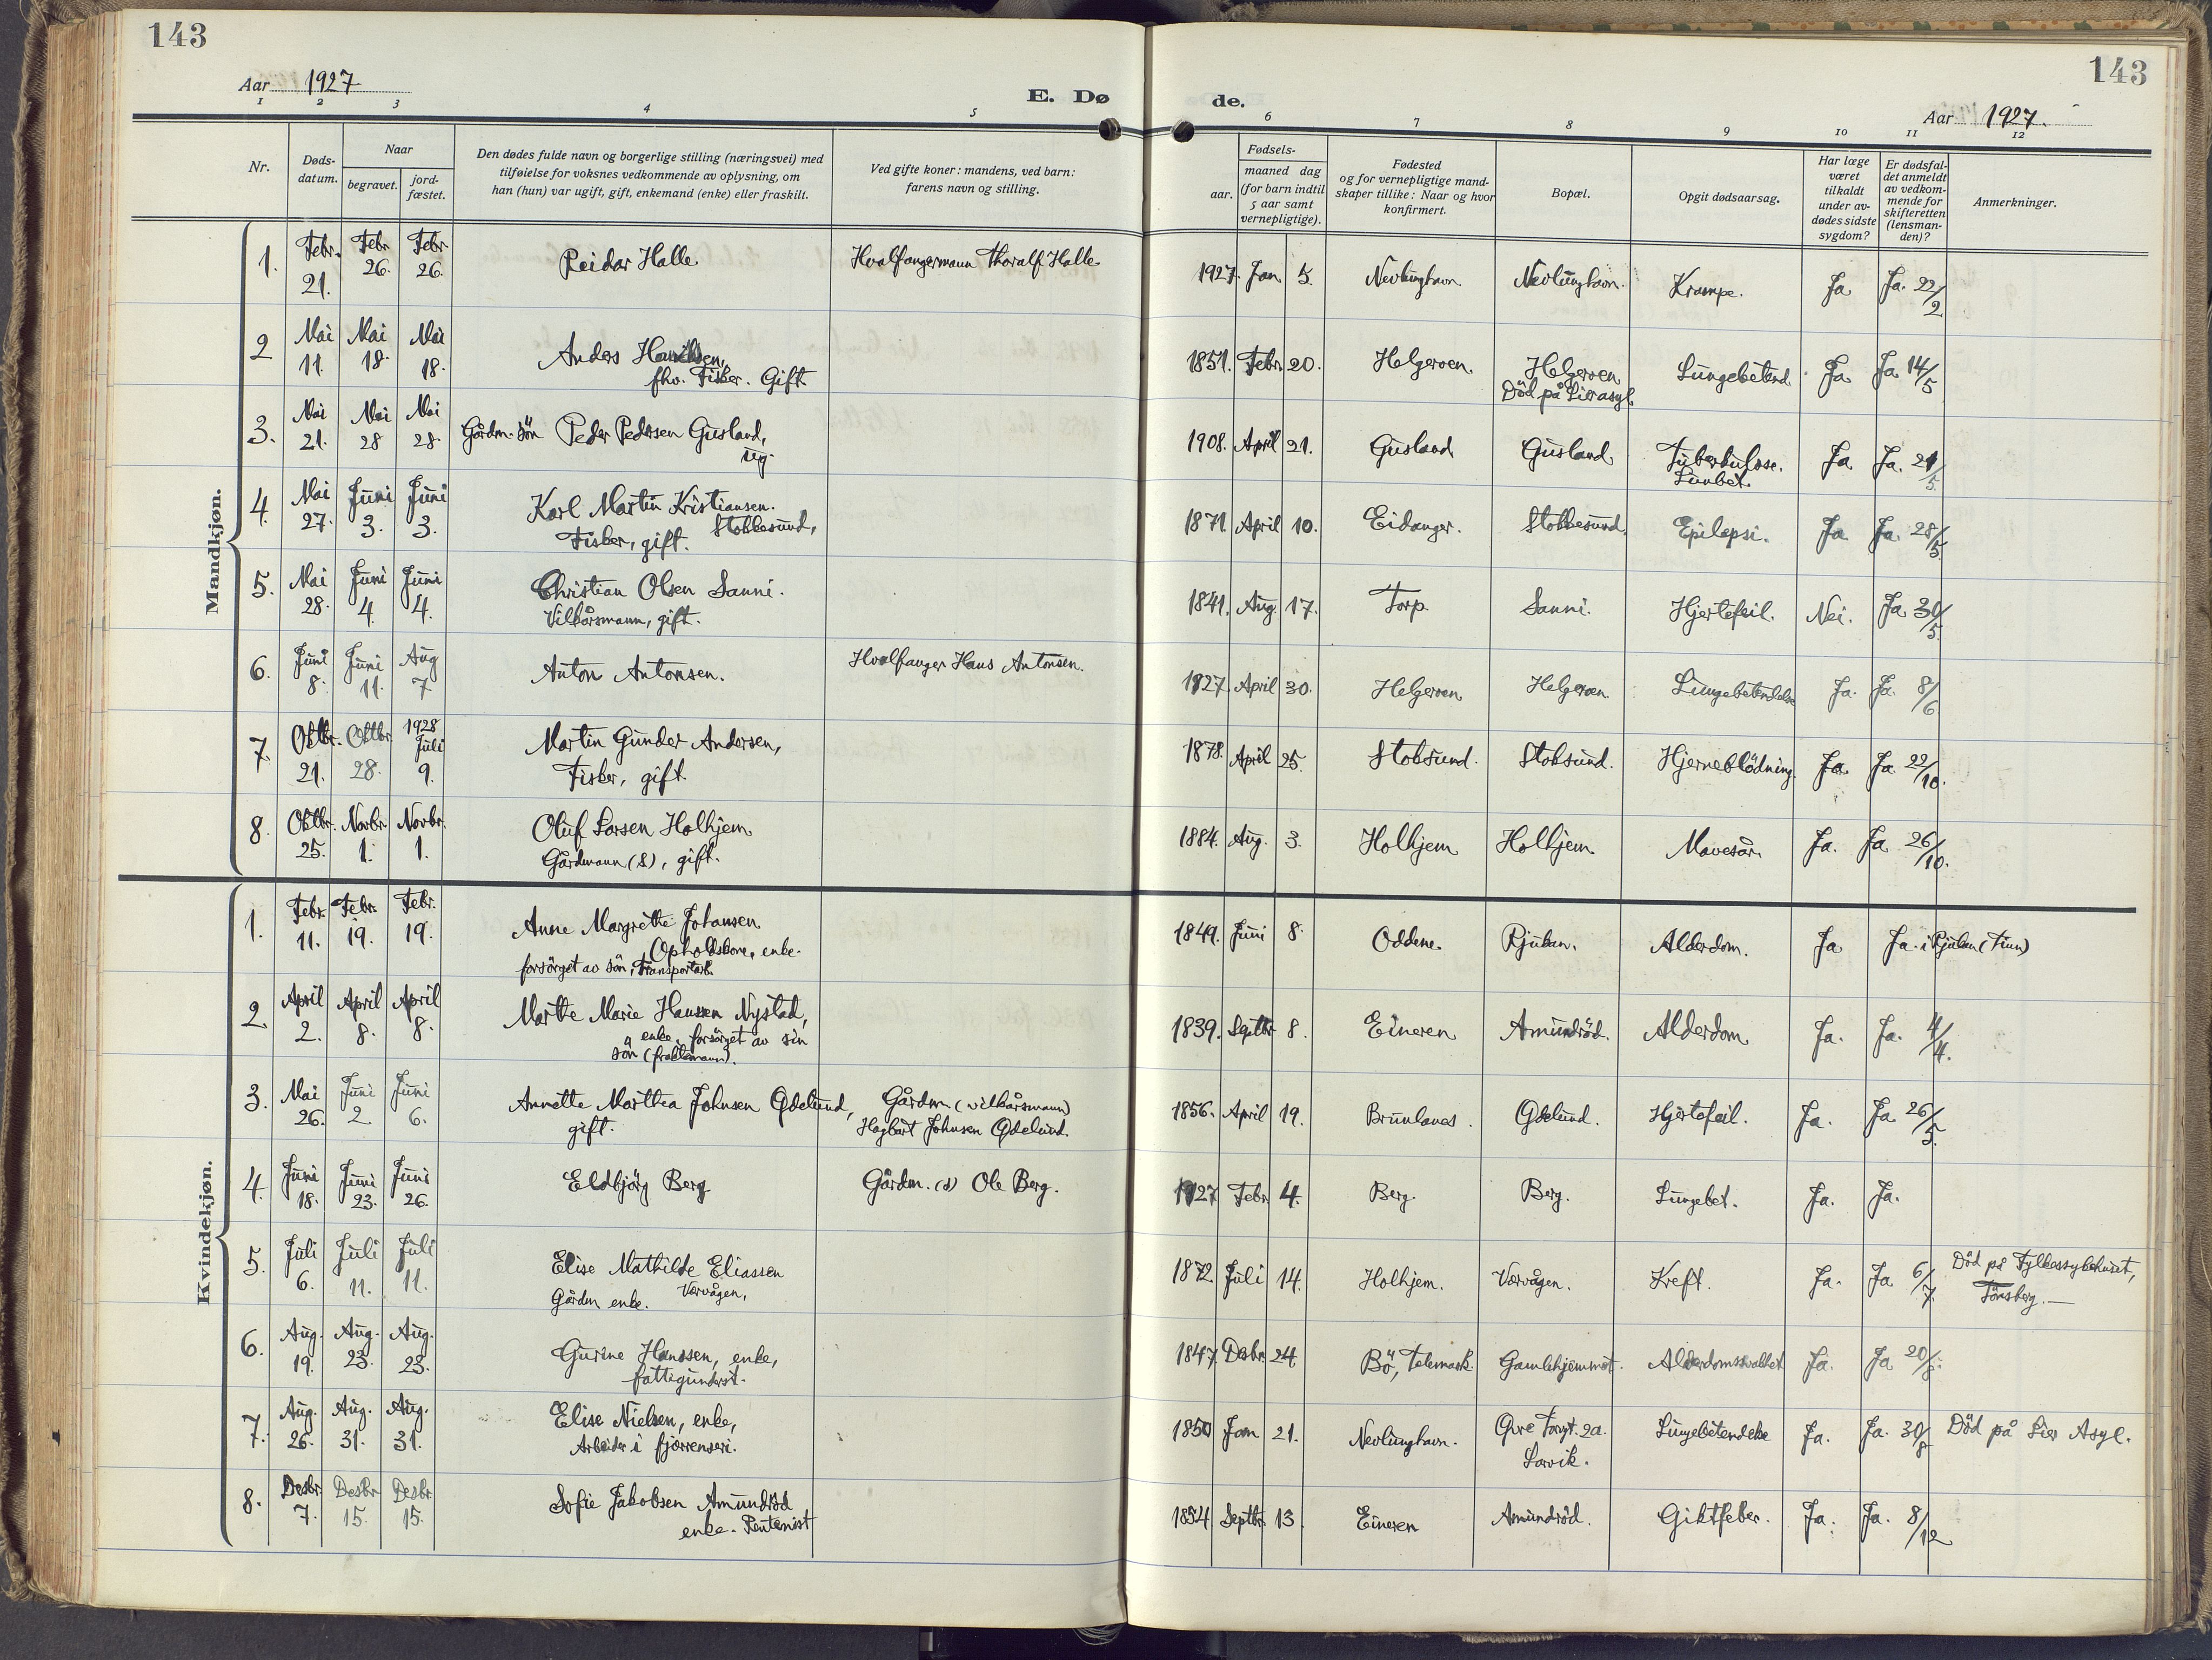 143
Aar 1927
E. Dø
1 2 3 4 5
Nr.
Døds-
datum.
Naar
begravet.
jord-
fæstet.
Den dødes fulde navn og borgerlige stilling (næringsvei) med
tilføielse for voksnes vedkommende av oplysning, om
han (hun) var ugift, gift, enkemand (enke) eller fraskilt.
Ved gifte koner: mandens, ved barn:
farens navn og stilling.
143
de.
Aar 1927.
6 7 8 9 10 11 12
Fødsels-
aar.
maaned dag
(for barn indtil
5 aar samt
vernepligtige).
Fødested
og for vernepligtige mand-
skaper tillike: Naar og hvor
konfirmert.
Bopæl.
Opgit dødsaarsag.
Har læge
været
tilkaldt
under av-
dødes sidste
sygdom?
Er dødsfal-
det anmeldt
av vedkom-
mende for
skifteretten
(lensman-
den)?
Anmerkninger.
Mandkjøn.
1. Febr. 21. Febr. 26. Febr. 26. Reidar Halle. Hvalfangermann Thoralf Halle. 1927. Jan. 5. Nevlunghavn. Nevlunghavn. Krampe. Ja Ja. 22/2
2 Mai 11. Mai 18. Mai 18. Anders
fhv. Fisker. Gift. 1851. Febr. 20. Helgeroen. Helgeroen
Död på Lier asyl. Lungebetend. Ja Ja 14/5
3. Mai 21. Mai 28 Mai 28. Gårdm. sön Peder Pedersen Gusland,
ug. 1908. April 21. Gusland Gusland Tuberkulose.
Lunbet. Ja. Ja. 21/5.
4. Mai 27. Juni 3. Juni 3. Karl Martin Kristiansen.
Stokkesund,
Fisker, gift. 1871. April 10. Eidanger. Stokkesund. Epilepsi. Ja Ja. 28/5
5. Mai 28. Juni 4. Juni 4. Christian Olsen Sanni.
Vilkårsmann, gift. 1841. Aug. 17. Torp. Sanni. Hjertefeil. Nei. Ja 30/5.
6. Juni 8. Juni 11. Aug 7 Anton Antonsen. Hvalfanger Hans Antonsen. 1927. April 30. Helgeroen Helgeroen. Lungebetendelse Ja. Ja. 8/6
7. Oktbr. 21. Oktbr. 28. 1928 Juli 9. Martin Gunder Andersen,
Fisker, gift. 1878. April 25. Stoksund. Stoksund. Hjerneblödning. Ja. Ja 22/10.
8. Oktbr. 25. Novbr. 1. Novbr. 1. Oluf Larsen Holhjem.
Gårdmann (S), gift. 1884. Aug. 3. Holhjem Holhjem. Mavesår. Ja. Ja 26/10.
Kvindekjøn.
1. Febr. 11. Febr. 19. Febr. 19. Anne Margrethe Johansen.
Opholdskone, enke.
forsörget av sön, Transportarb. 1849. Juni 8. Oddene. Rjukan. Alderdom. Ja Ja. i Rjukan (Tinn)
2. April 2. April 8. April 8. Marthe Marie Hansen Nystad,
enke, forsörget av sin
sön (fraktemann). 1839. Septbr 8. Eineren Amundröd. Alderdom. Ja. Ja. 4/4.
3. Mai 26. Juni 2 Juni 6. Annette Marthea Johnsen Ödelund,
gift. Gårdm (vilkårsmann)
Hagbart Johnsen Ödelund. 1856. April 19. Brunlanes. Ödelund. Hjertefeil. Ja. Ja 26/5.
4. Juni 18. Juni 23. Juni 26. Eldbjörg Berg Gårdm. (s) Ole Berg. 1927 Febr 4. Berg. Berg. Lungebet. Ja. Ja.
5. Juli 6. Juli 11. Juli 11. Elise Mathilde Eliassen
Vorvågen,
Gårdm enke. 1872. Juli 14. Holhjem. Vorvågen. Kreft. Ja. Ja 6/7. Död på Fylkessykehuset,
Tönsberg. —
6. Aug. 19. Aug. 23. Aug. 23. Gurine Hanssen, enke,
fattigunderst. 1847. Desbr 24. Bö, Telemark. Gamlehjemmet. Alderdomssvakhet Ja. Ja 20/8.
7. Aug. 26. Aug. 31. Aug. 31. Elise Nielsen, enke,
Arbeider i fjörrenseri. 1850 Jan 21. Nevlunghavn. Övre Torvgt. 2a.
Larvik. Lungebetendelse Ja. Ja. 30/8 Död på Lier Asyl.
8. Desbr 7. Desbr 15. Desbr 15. Sofie Jakobsen Amundröd
enke. Rentenist 1854 Septbr. 13. Eineren Amundröd. Giktfeber. Ja. Ja. 8/12